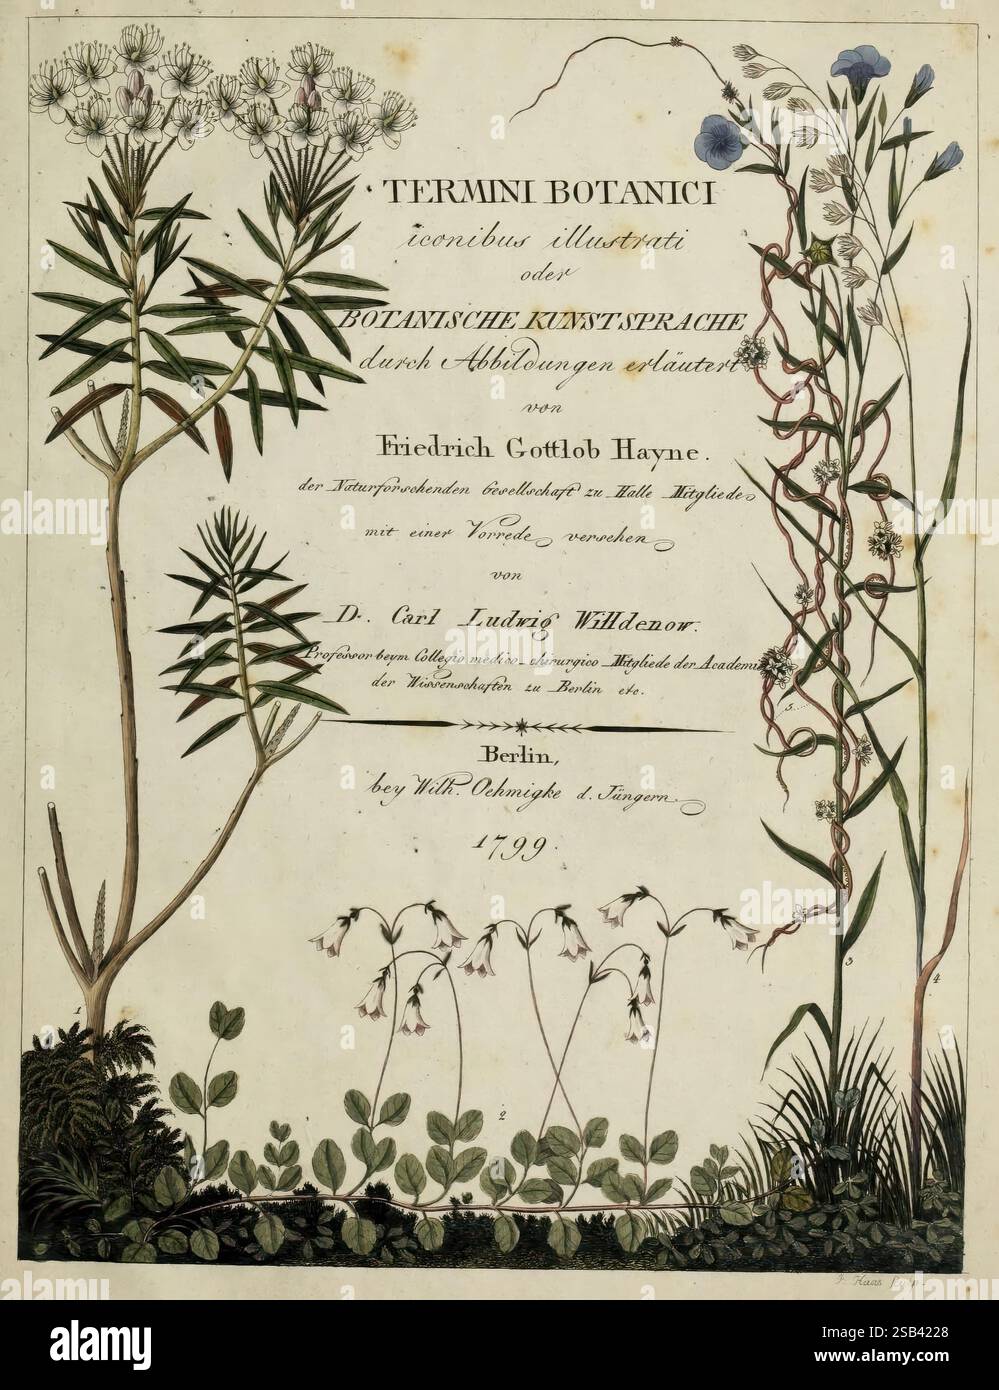 TERMINI BOTANICI
iconibus illustrati
oder
BOTANISCHE KUNSTSPRACHE
durch Abbildungen erläutert
von
Friedrich Gottlob Hayne.
der Naturforschenden Gesellschaft zu Halle Mitgliede
mit einer Vorrede versehen
von
D. Carl Ludwig Willdenow.
Professor beym Collegio medico-chirurgico Mitgliede der Academi
der Wissenschaften zu Berlin etc.
Berlin,
bey Wilh. Oehmigke d. Jüngern
1799.
5.
3
4
1
2
Haas sculp.
alamy
Image ID: 2SB4228
www.alamy.com